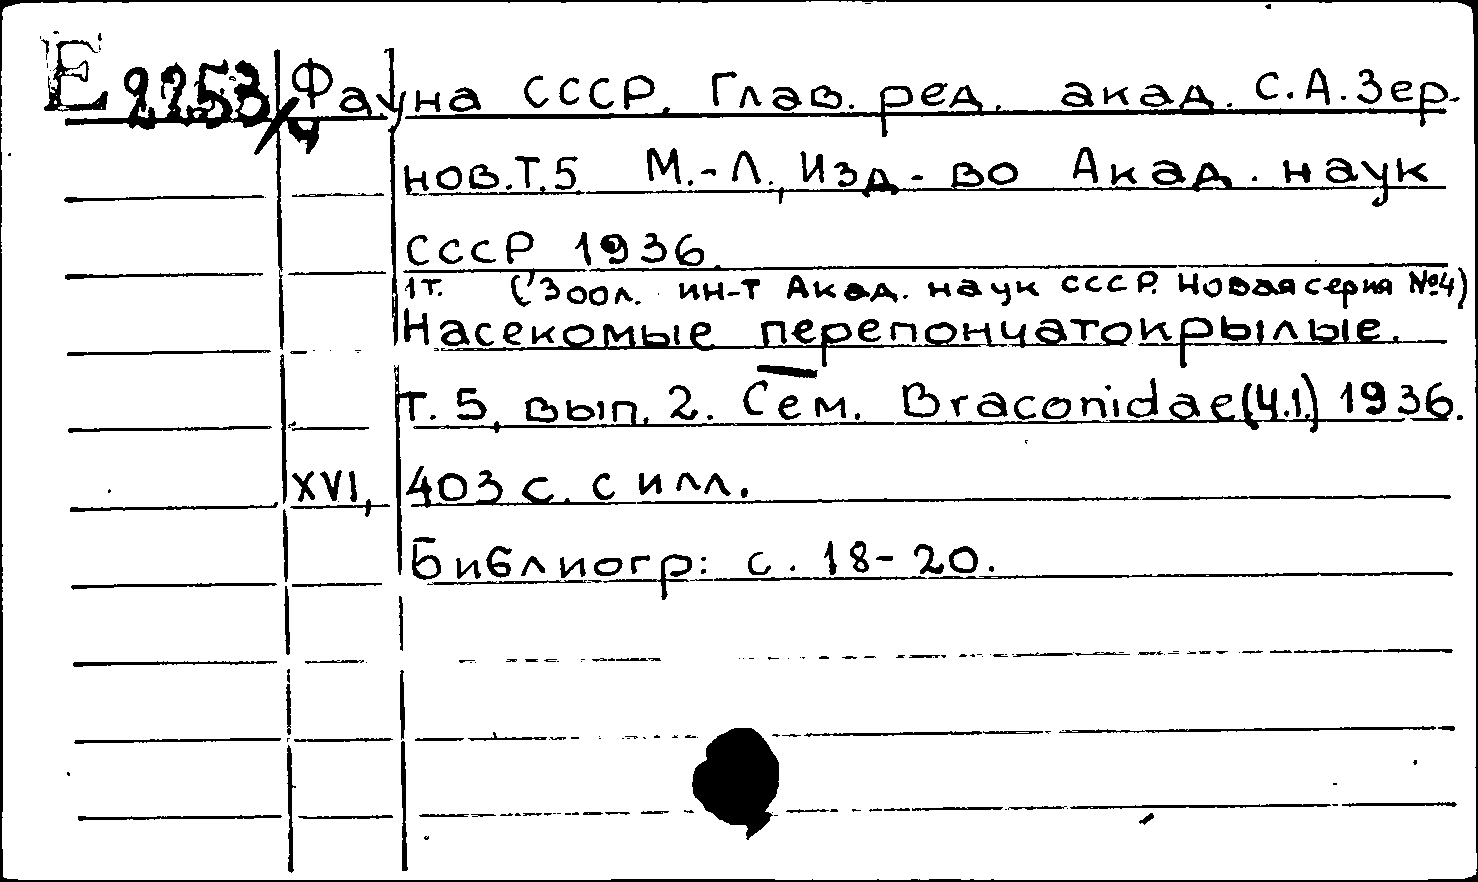 Е 2253/4 Фауна СССР. Глав. ред. акад. С.А.Зер-
нов.Т.5 М.-Л., Изд-во Акад. наук
СССР 1936.
1т. (Зоол. ин-т Акад. наук СССР. Новая серия №4)
Насекомые перепончатокрылые.
Т. 5, вып. 2. Сем. Braconidae (Ч.1.) 1936.
XVI, 403 с. с илл.
Библиогр: с. 18-20.